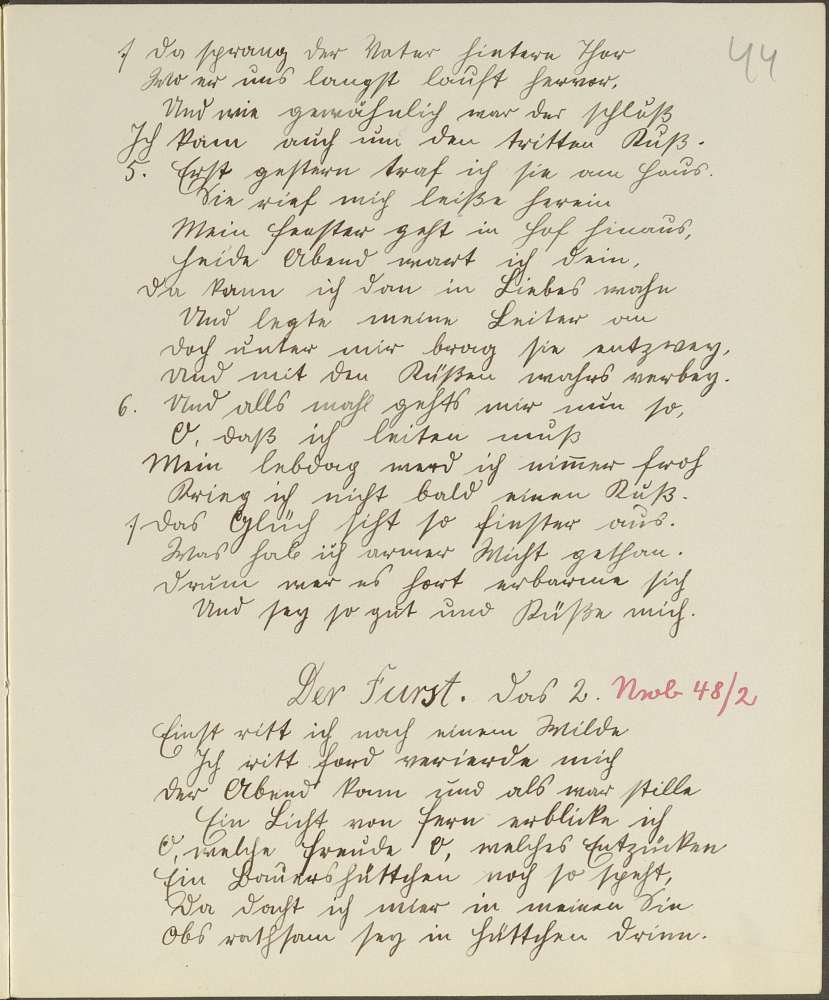 44
:/ Da sprang der Vater hintern Thor
Wo er uns langst lauft hervor,
Und wie gewöhnlich war der schluß
Ich kam auch um den tritten Kuß.
5. Erst gestern traf ich sie am Haus.
Sie rief mich leiße herein
Mein fenster geht in Hof hinaus,
heide Abend wart ich dein,
Da kann ich dan in Liebes wahn
Und legte meine Leiter an
doch unter mir brag sie entzwey,
und mit den Küßen wahrs verbey.
6. Und alls mahl gehts mir nun so,
O, daß ich leiten muß
Mein lebdag werd ich nim̄er froh
Krieg ich nicht bald einen Kuß.
:/ Das Glück siht so finster aus.
Was hab ich armer Wicht gethan.
drum wer es hort erbarme sich
Und sey so gut und Küße mich.
Der Furst. Das 2. 48/2
Einst ritt ich nach einem Wilde
Ich ritt ford verierde mich
der Abend kam und als war stille
Ein Licht von fern erblicke ich
O, welche freude O, welches Entzücken
Ein Bauershüttchen noch so speht,
Da dacht ich mier in meinen Sin
Obs rathsam sey in hüttchen drinn.